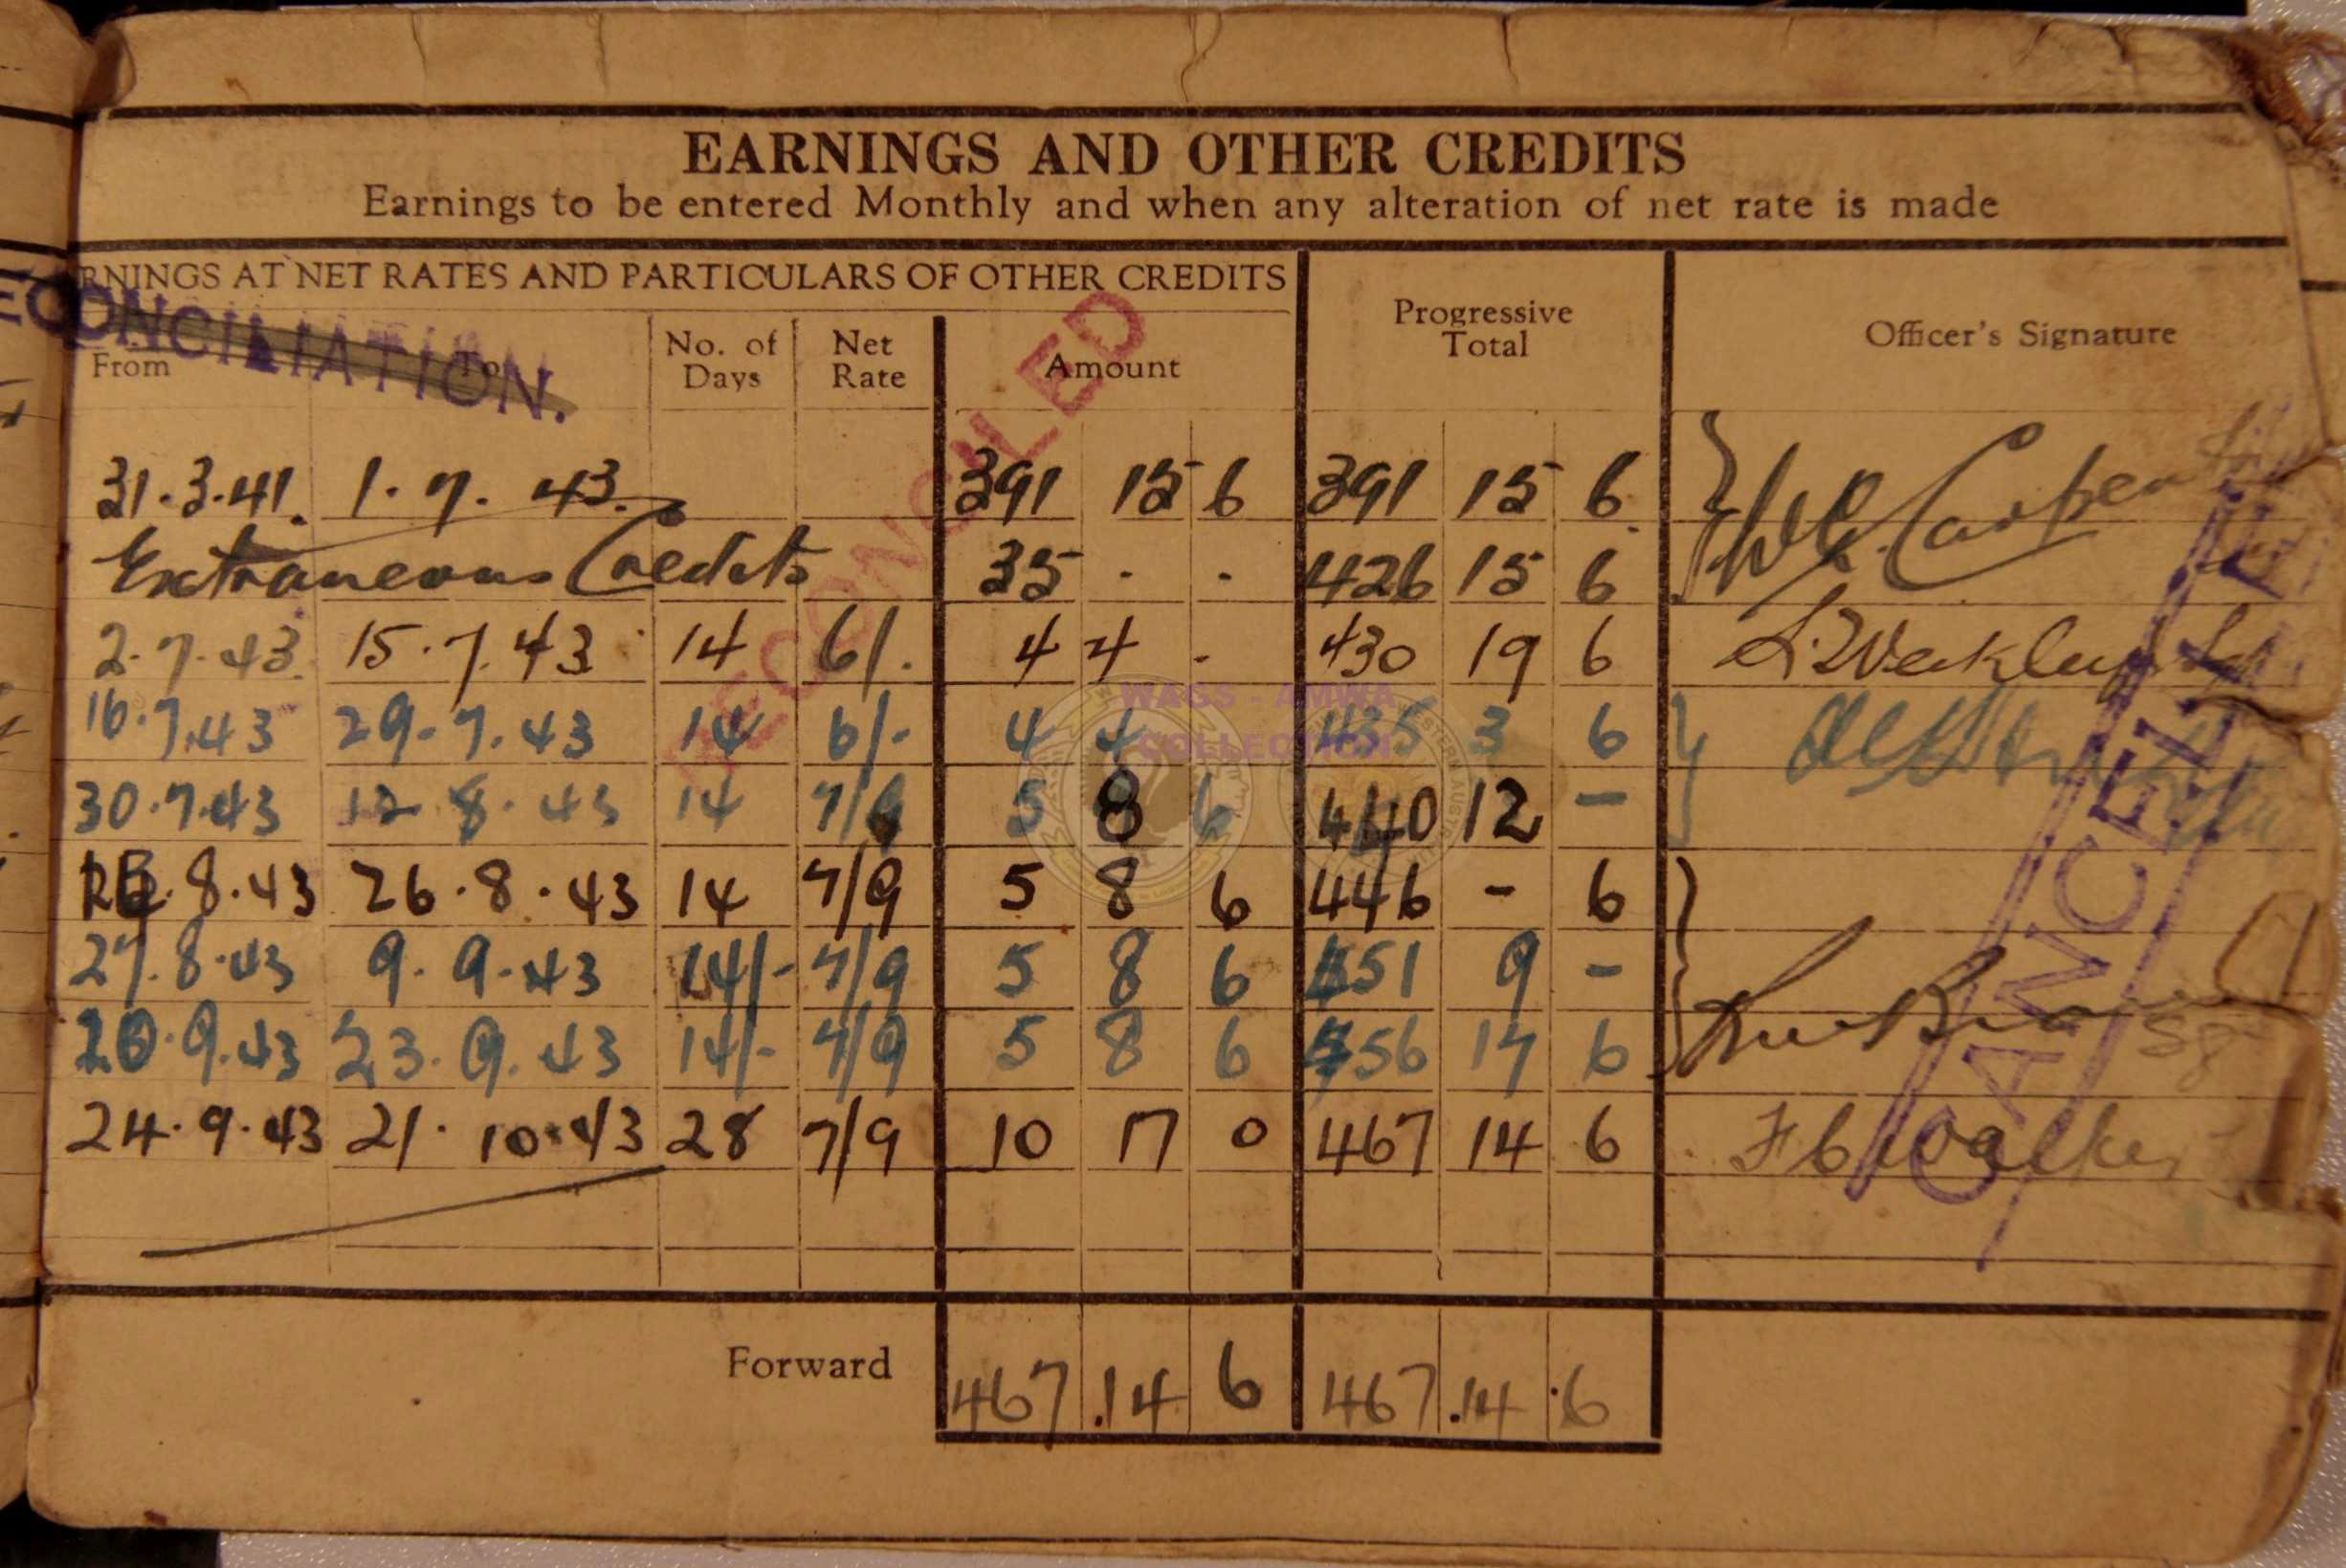 EARNINGS AND OTHER CREDITS
Earnings to be entered Monthly and when any alteration of net rate is made
RNINGS AT NET RATES AND PARTICULARS OF OTHER CREDITS
ECONCILIATION.
From To No. of Days Net Rate Amount Progressive Total Officer's Signature
RECONCILED
31.3.41. 1.7.43. 391 15 6 391 15 6
Extraneous Credits 35 - - 426 15 6
2.7.43. 15.7.43 14 6/- 4 4 - 430 19 6
16.7.43 29.7.43 14 6/- 4 4 435 3 6
30.7.43 12 8.43 14 7/9 5 8 6 440 12 -
8.43 26.8.43 14 7/9 5 8 6 446 - 6
27.8.43 9.9.43 14/- 7/9 5 8 6 451 9 -
9.43 23.9.43 14/- 7/9 5 8 6 456 17 6
24.9.43 21.10.43 28 7/9 10 17 0 467 14 6 Walker
CANCELLED
WAGS - AMWA
COLLECTION
Forward 467.14 6 467.14.6